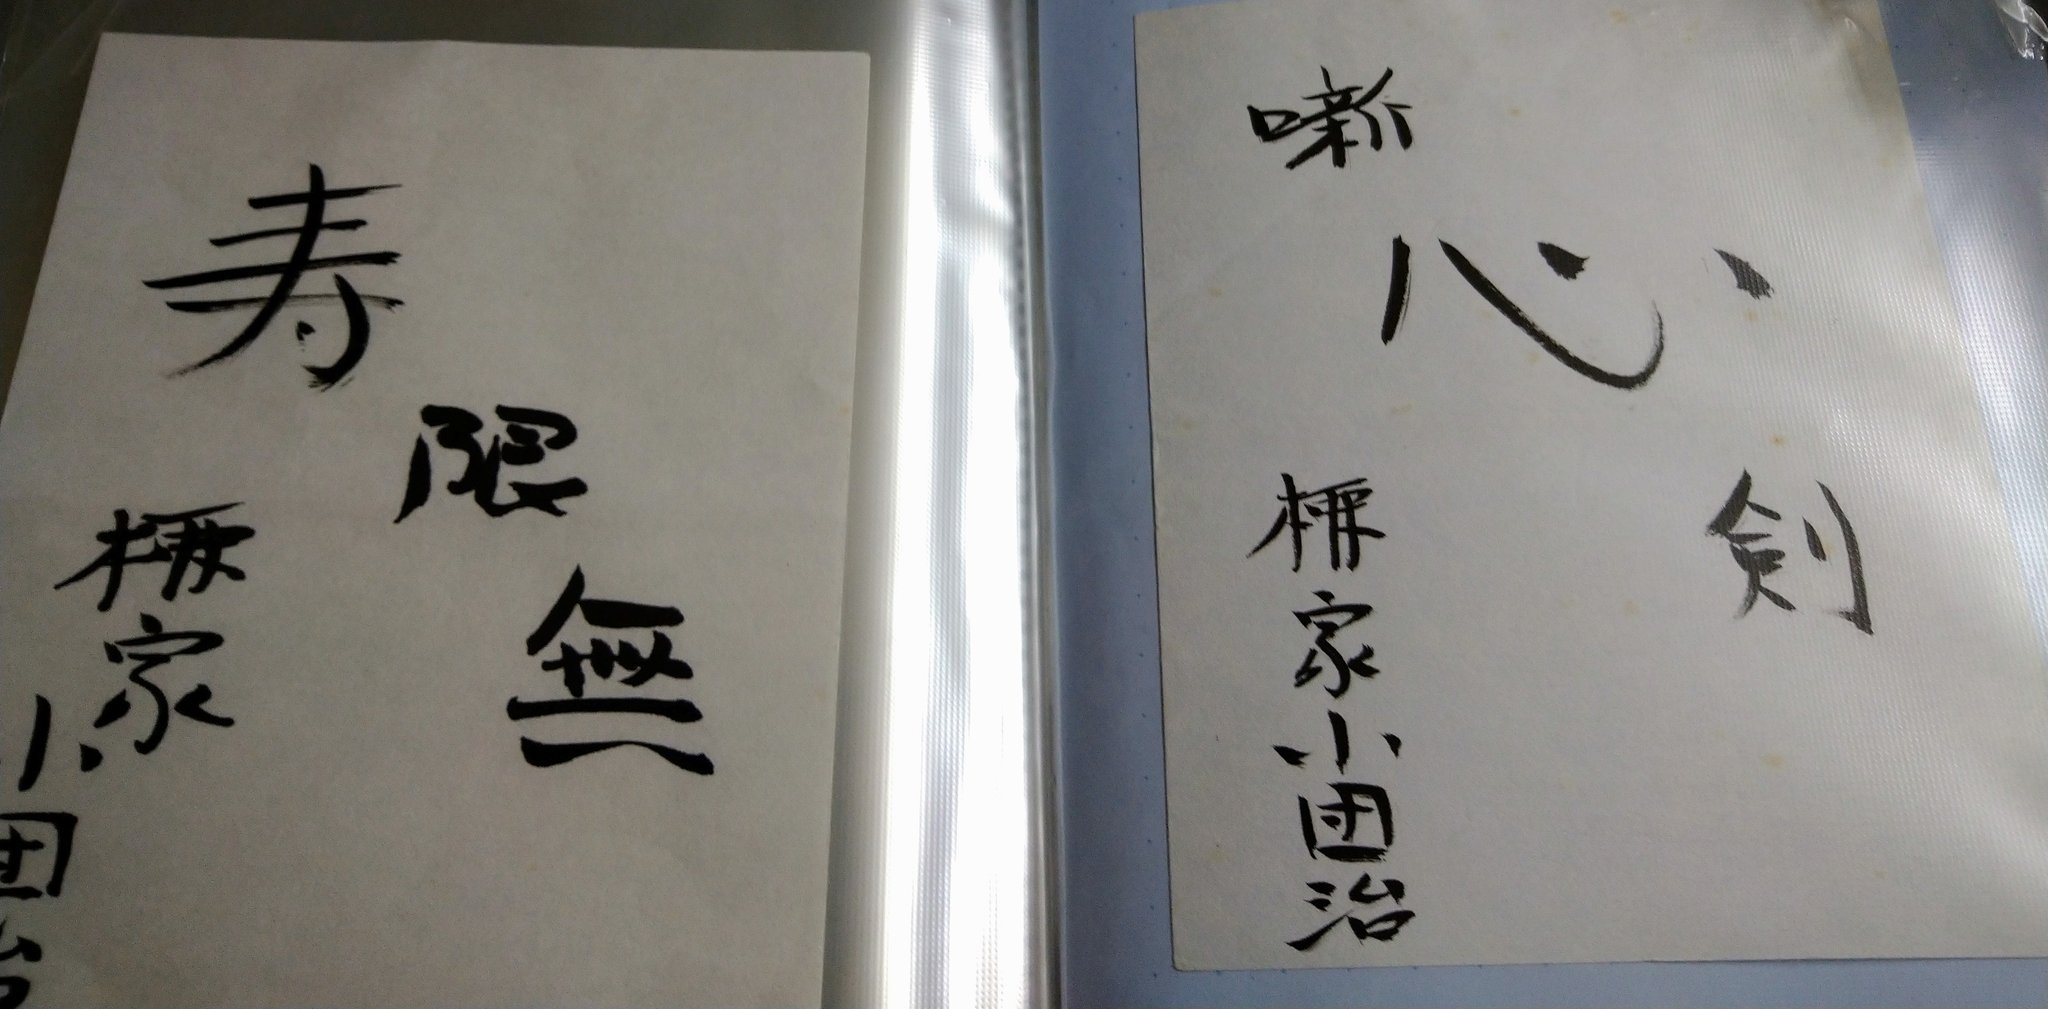 寿限無
柳家小団治
噺心剣
柳家小団治